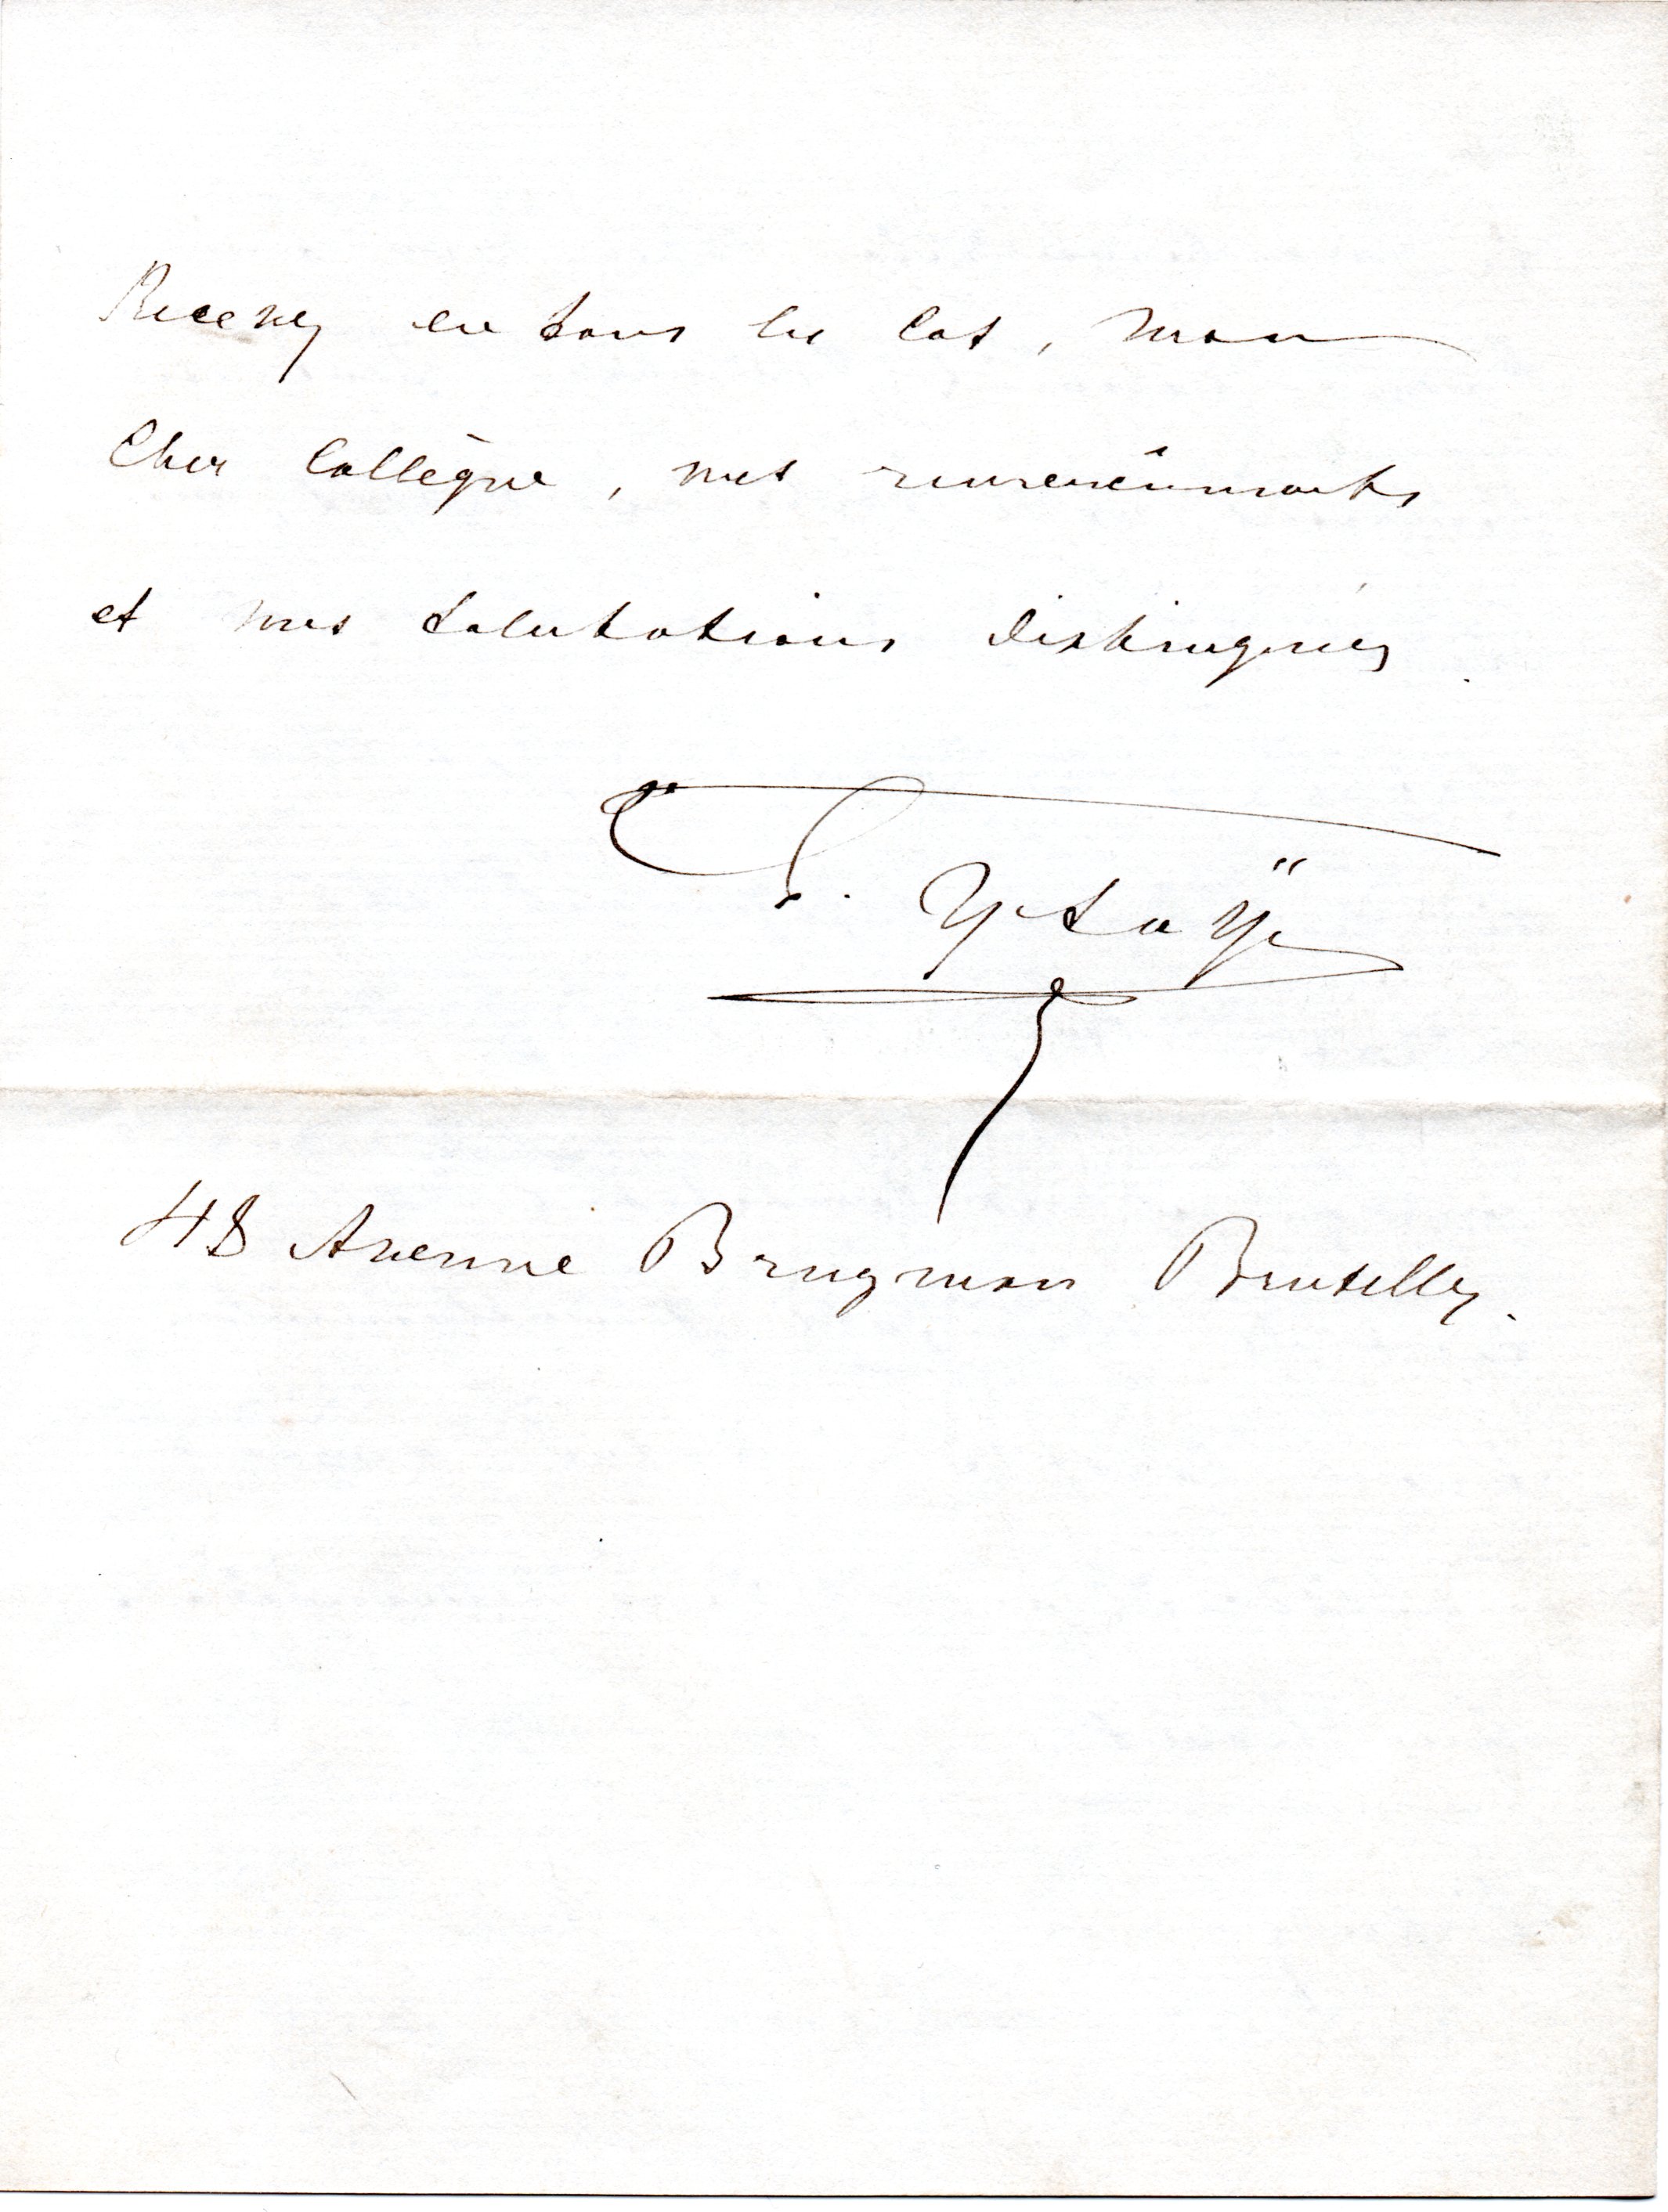 Recevez en tous les cas, mon
Cher Collègue, mes remerciements
et mes salutations distinguées.
T. Ysaÿe
48 Avenue Brugman Bruxelles.